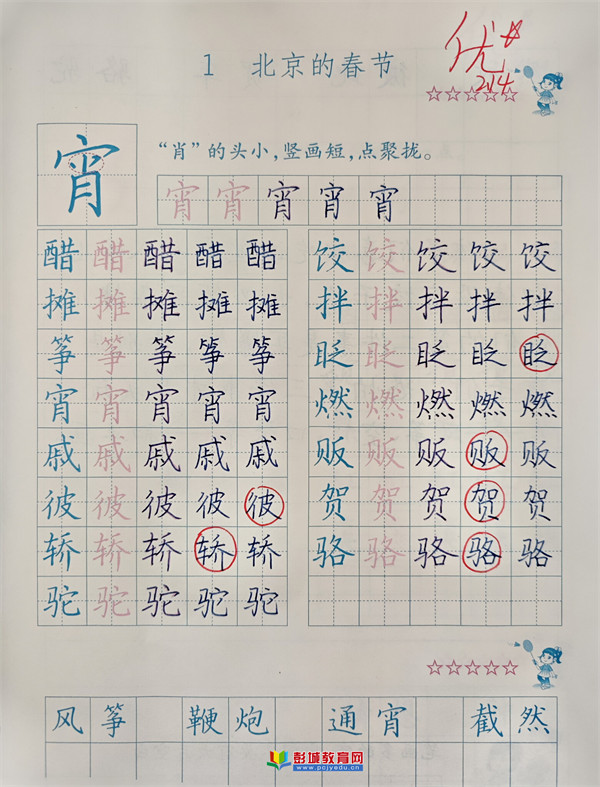 1 北京的春节
优
2.14
宵
“肖”的头小，竖画短，点聚拢。
宵 宵 宵 宵 宵
醋 醋 醋 醋 醋 饺 饺 饺 饺 饺
摊 摊 摊 摊 摊 拌 拌 拌 拌 拌
筝 筝 筝 筝 筝 眨 眨 眨 眨 眨
宵 宵 宵 宵 宵 燃 燃 燃 燃 燃
戚 戚 戚 戚 戚 贩 贩 贩 贩 贩
彼 彼 彼 彼 彼 贺 贺 贺 贺 贺
轿 轿 轿 轿 轿 骆 骆 骆 骆 骆
驼 驼 驼 驼 驼
风筝 鞭炮 通宵 截然
彭城教育网
www.pcjyedu.cn